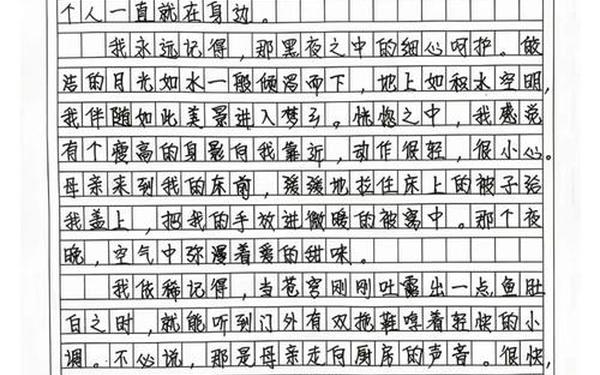 个人一直就在身边。
我永远记得，那黑夜之中的细心呵护。皎
洁的月光如水一般倾泻而下，地上如积水空明，
我伴随如此美景进入梦乡。恍惚之中，我感觉
有个瘦高的身影向我靠近，动作很轻，很小心。
母亲来到我的床前，缓缓地拉住床上的被子给
我盖上，把我的手放进微暖的被窝中。那个夜
晚，空气中弥漫着爱的甜味。
我依稀记得，当苍穹刚刚吐露出一点鱼肚
白之时，就能听到门外有双拖鞋哼着轻快的小
调。不必说，那是母亲走向厨房的声音。很快，